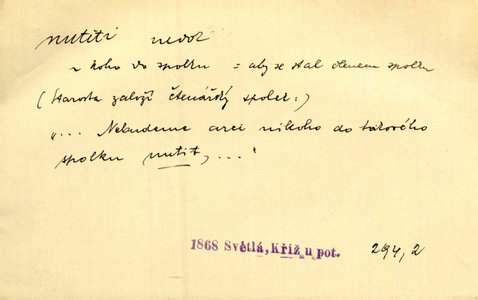 nutiti nedok
~ koho do spolku = aby se stal členem spolku
(Starosta založí čtenářský spolek:)
„... Nebudeme arci nikoho do takového
spolku nutit, ..."
1868 Světlá, Kříž u pot. 294, 2